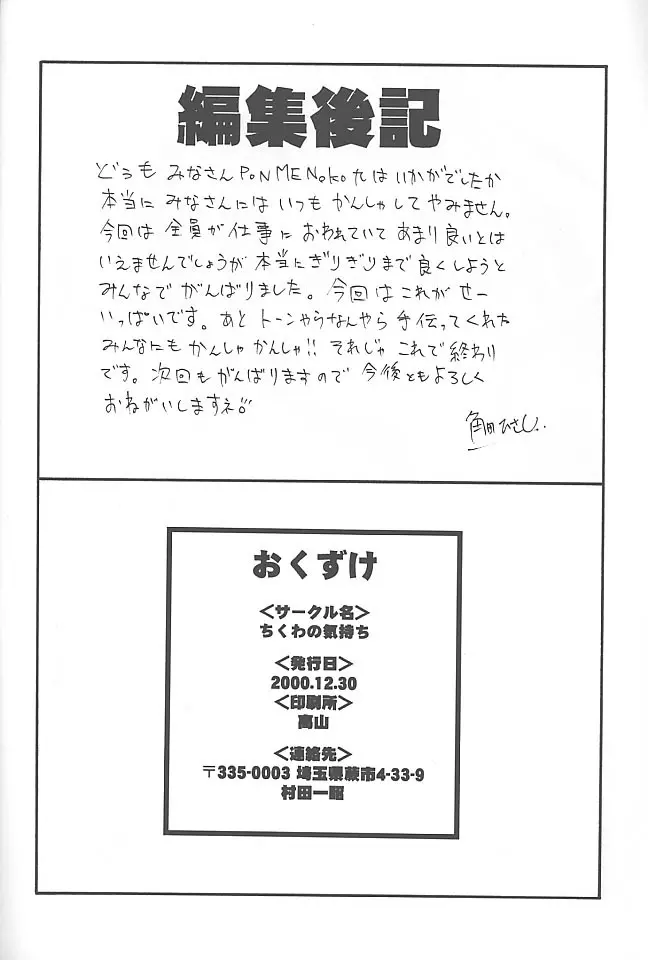 編集後記
どうも みなさん PON MENOKO九は いかがでしたか
本当に みなさんには いつも かんしゃしてやみません。
今回は 全員が 仕事に おわれていて あまり良いとは
いえませんでしょうが 本当にぎりぎりまで良くしようと
みんなで がんばりました。今回は これが せー
いっぱいです。あと トーンやらなんやら 手伝ってくれた
みんなにも かんしゃ かんしゃ!! それじゃ これで 終わり
です。次回も がんばりますので 今後ともよろしく
おねがいしますネ
角田ひさし
おくずけ
<サークル名>
ちくわの気持ち
<発行日>
2000.12.30
<印刷所>
高山
<連絡先>
〒335-0003 埼玉県蕨市4-33-9
村田一昭